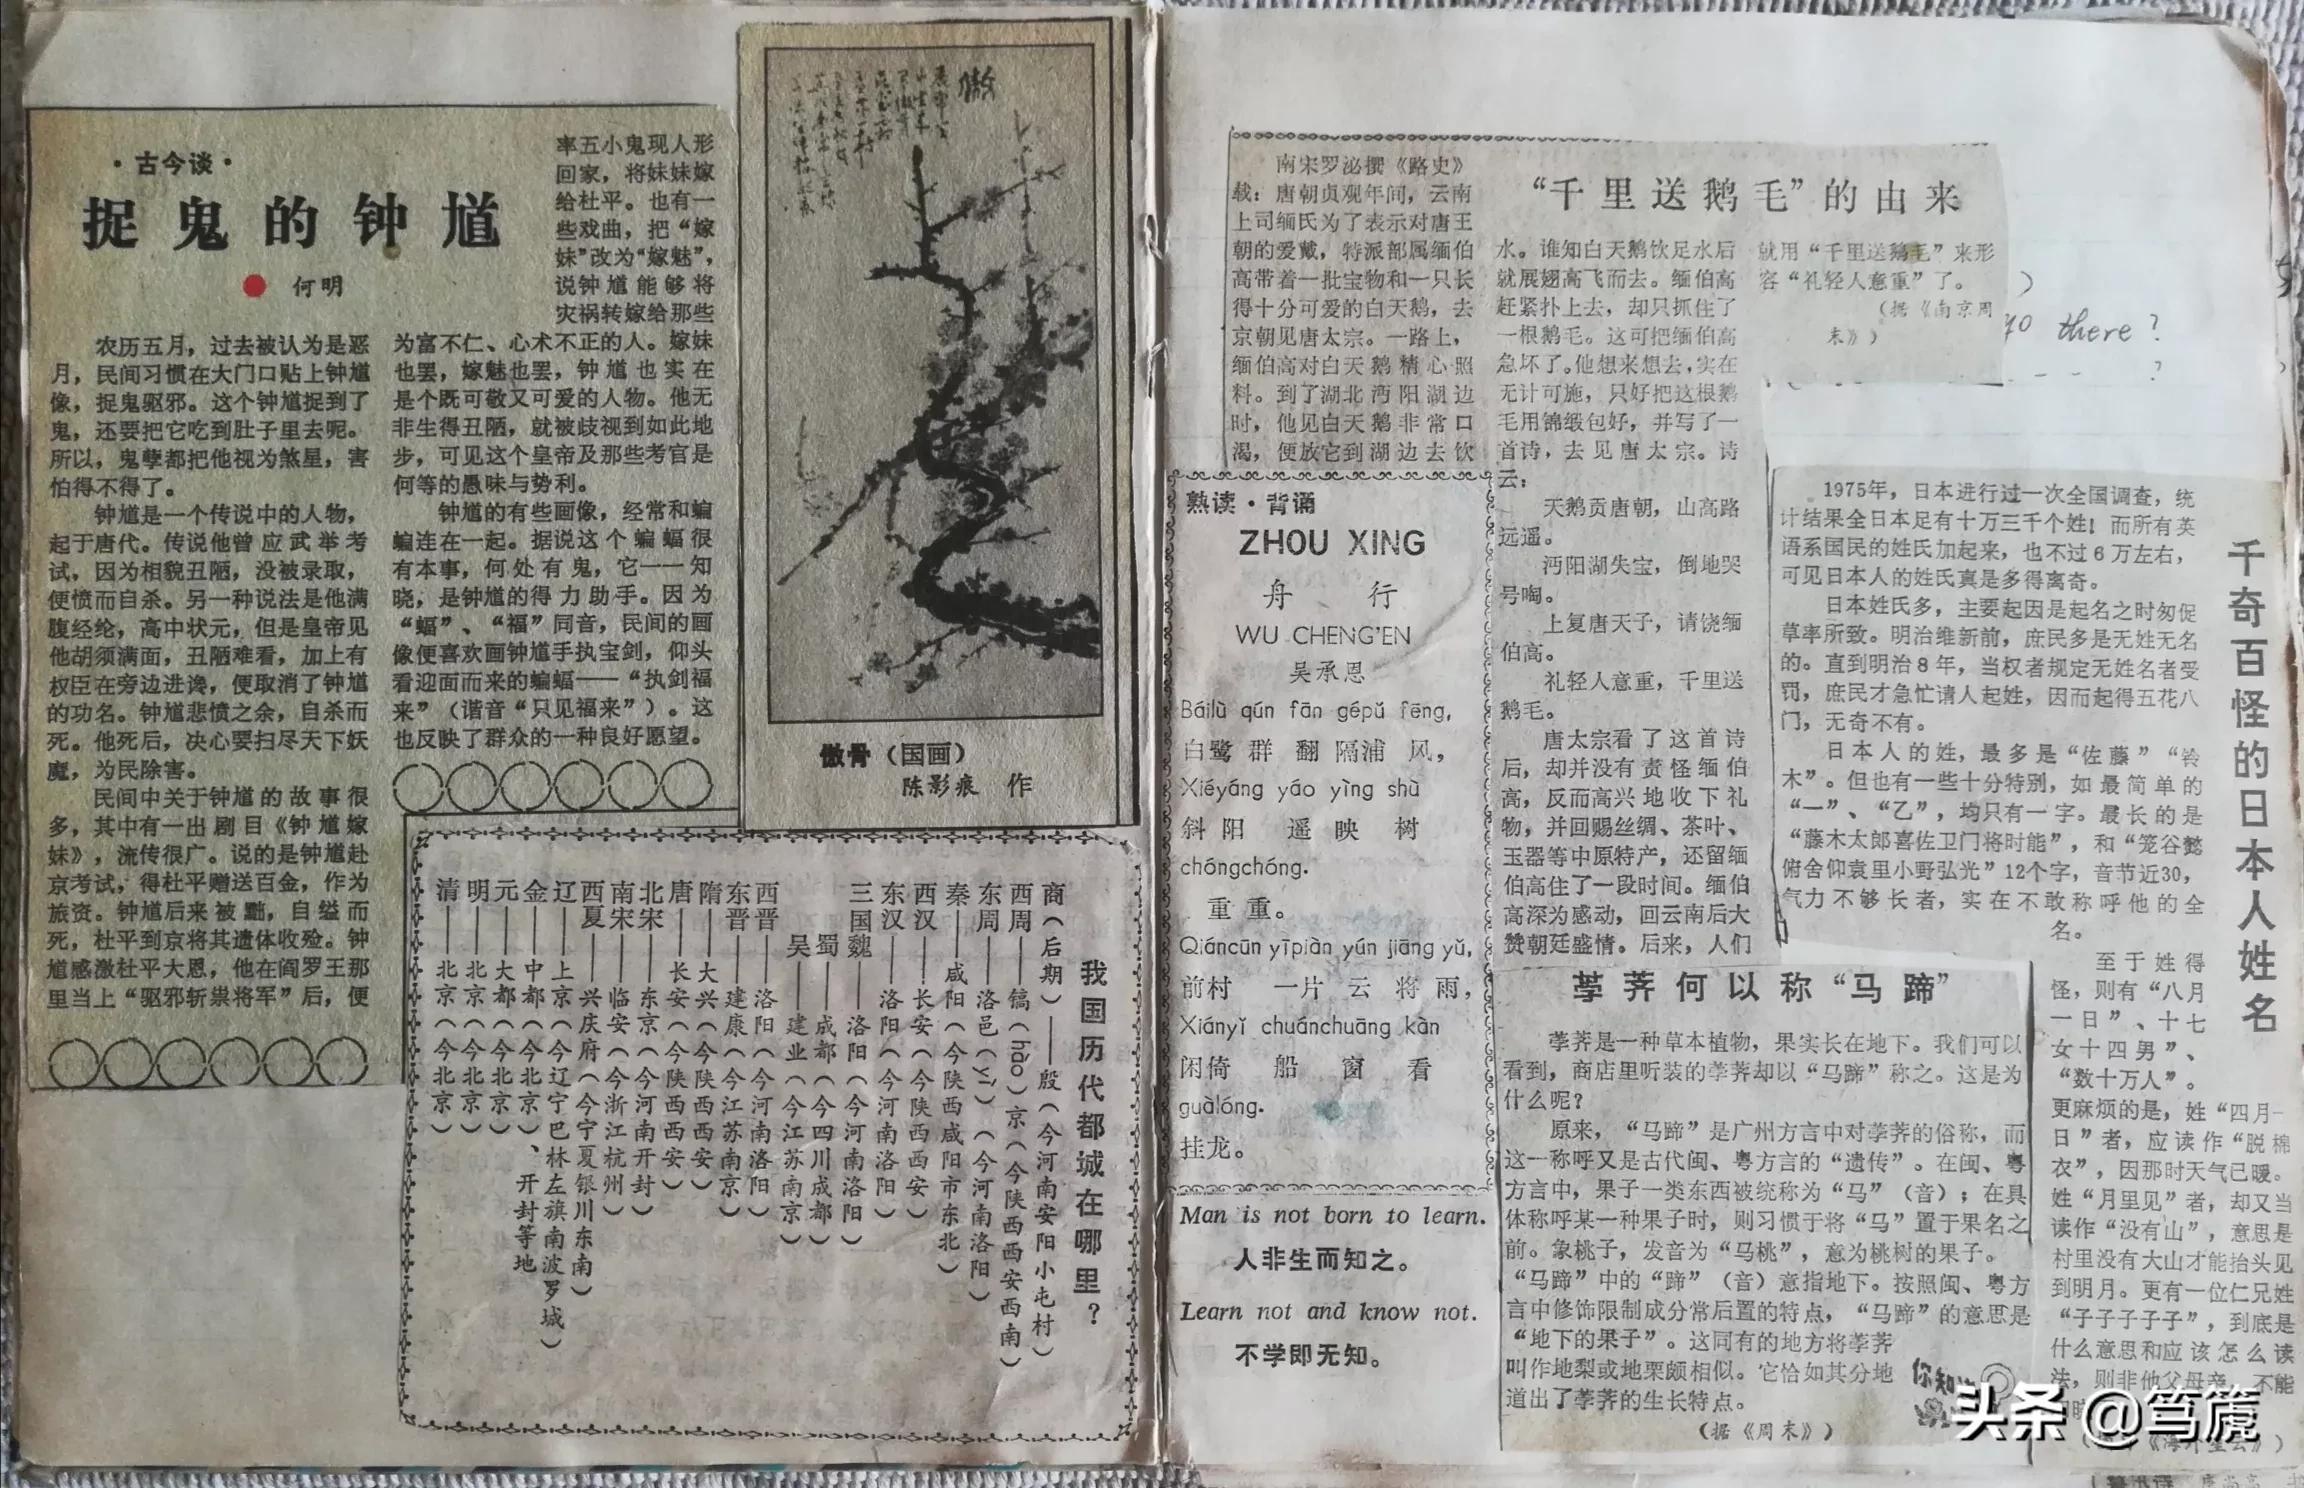 ·古今谈·
捉鬼的钟馗
何明
农历五月，过去被认为是恶
月，民间习惯在大门口贴上钟馗
像，捉鬼驱邪。这个钟馗捉到了
鬼，还要把它吃到肚子里去呢。
所以，鬼孽都把他视为煞星，害
怕得不得了。
钟馗是一个传说中的人物，
起于唐代。传说他曾应武举考
试，因为相貌丑陋，没被录取，
便愤而自杀。另一种说法是他满
腹经纶，高中状元，但是皇帝见
他胡须满面，丑陋难看，加上有
权臣在旁边进谗，便取消了钟馗
的功名。钟馗悲愤之余，自杀而
死。他死后，决心要扫尽天下妖
魔，为民除害。
民间中关于钟馗的故事很
多，其中有一出剧目《钟馗嫁
妹》，流传很广。说的是钟馗赴
京考试，得杜平赠送百金，作为
旅资。钟馗后来被黜，自缢而
死，杜平到京将其遗体收殓。钟
馗感激杜平大恩，他在阎罗王那
里当上“驱邪斩祟将军”后，便
率五小鬼现人形
回家，将妹妹嫁
给杜平。也有一
些戏曲，把“嫁
妹”改为“嫁魅”，
说钟馗能够将
灾祸转嫁给那些
为富不仁、心术不正的人。嫁妹
也罢，嫁魅也罢，钟馗也实在
是个既可敬又可爱的人物。他无
非生得丑陋，就被歧视到如此地
步，可见这个皇帝及那些考官是
何等的愚昧与势利。
钟馗的有些画像，经常和蝙
蝠连在一起。据说这个蝙蝠很
有本事，何处有鬼，它一一知
晓，是钟馗的得力助手。因为
“蝠”、“福”同音，民间的画
像便喜欢画钟馗手执宝剑，仰头
看迎面而来的蝙蝠——“执剑福
来”（谐音“只见福来”）。这
也反映了群众的一种良好愿望。
傲
傲骨（国画）
陈影痕 作
我国历代都城在哪里？
商（后期）——殷（今河南安阳小屯村）
西周——镐（hào）京（今陕西西安西南）
东周——洛邑（yì）（今河南洛阳）
秦——咸阳（今陕西咸阳市东北）
西汉——长安（今陕西西安）
东汉——洛阳（今河南洛阳）
三国魏——洛阳（今河南洛阳）
蜀——成都（今四川成都）
吴——建业（今江苏南京）
西晋——洛阳（今河南洛阳）
东晋——建康（今江苏南京）
隋——大兴（今陕西西安）
唐——长安（今陕西西安）
北宋——东京（今河南开封）
南宋——临安（今浙江杭州）
西夏——兴庆府（今宁夏银川东南）
辽——上京（今辽宁巴林左旗南波罗城）
金——中都（今北京）、开封等地
元——大都（今北京）
明——北京（今北京）
清——北京（今北京）
“千里送鹅毛”的由来
南宋罗泌撰《路史》
载：唐朝贞观年间，云南
上司缅氏为了表示对唐王
朝的爱戴，特派部属缅伯
高带着一批宝物和一只长
得十分可爱的白天鹅，去
京朝见唐太宗。一路上，
缅伯高对白天鹅精心照
料。到了湖北沔阳湖边
时，他见白天鹅非常口
渴，便放它到湖边去饮
水。谁知白天鹅饮足水后
就展翅高飞而去。缅伯高
赶紧扑上去，却只抓住了
一根鹅毛。这可把缅伯高
急坏了。他想来想去，实在
无计可施，只好把这根鹅
毛用锦缎包好，并写了一
首诗，去见唐太宗。诗
云：
天鹅贡唐朝，山高路
远遥。
沔阳湖失宝，倒地哭
号啕。
上复唐天子，请饶缅
伯高。
礼轻人意重，千里送
鹅毛。
唐太宗看了这首诗
后，却并没有责怪缅伯
高，反而高兴地收下礼
物，并回赐丝绸、茶叶、
玉器等中原特产，还留缅
伯高住了一段时间。缅伯
高深为感动，回云南后大
赞朝廷盛情。后来，人们
就用“千里送鹅毛”来形
容“礼轻人意重”了。
（据《南京周
末》）
go there?
熟读·背诵
ZHOU XING
舟 行
WU CHENG'EN
吴承恩
Báilù qún fān gépǔ fēng,
白鹭 群 翻 隔浦 风，
Xiéyáng yáo yìng shù
斜阳 遥 映 树
chóngchóng.
重重。
Qiáncūn yīpiàn yún jiāng yǔ,
前村 一片 云 将 雨，
Xiányǐ chuánchuāng kàn
闲倚 船 窗 看
guàlóng.
挂龙。
Man is not born to learn.
人非生而知之。
Learn not and know not.
不学即无知。
荸荠何以称“马蹄”
荸荠是一种草本植物，果实长在地下。我们可以
看到，商店里听装的荸荠却以“马蹄”称之。这是为
什么呢？
原来，“马蹄”是广州方言中对荸荠的俗称，而
这一称呼又是古代闽、粤方言的“遗传”。在闽、粤
方言中，果子一类东西被统称为“马”（音）；在具
体称呼某一种果子时，则习惯于将“马”置于果名之
前。象桃子，发音为“马桃”，意为桃树的果子。
“马蹄”中的“蹄”（音）意指地下。按照闽、粤方
言中修饰限制成分常后置的特点，“马蹄”的意思是
“地下的果子”。这同有的地方将荸荠
叫作地梨或地栗颇相似。它恰如其分地
道出了荸荠的生长特点。
（据《周末》）
你知
千奇百怪的日本人姓名
1975年，日本进行过一次全国调查，统
计结果全日本足有十万三千个姓！而所有英
语系国民的姓氏加起来，也不过6万左右，
可见日本人的姓氏真是多得离奇。
日本姓氏多，主要起因是起名之时匆促
草率所致。明治维新前，庶民多是无姓无名
的。直到明治8年，当权者规定无姓名者受
罚，庶民才急忙请人起姓，因而起得五花八
门，无奇不有。
日本人的姓，最多是“佐藤”“铃
木”。但也有一些十分特别，如最简单的
“一”、“乙”，均只有一字。最长的是
“藤木太郎喜佐卫门将时能”，和“笼谷懿
俯舍仰袁里小野弘光”12个字，音节近30，
气力不够长者，实在不敢称呼他的全
名。
至于姓得
怪，则有“八月
一日”、十七
女十四男”、
“数十万人”。
更麻烦的是，姓“四月一
日”者，应读作“脱棉
衣”，因那时天气已暖。
姓“月里见”者，却又当
读作“没有山”，意思是
村里没有大山才能抬头见
到明月。更有一位仁兄姓
“子子子子子”，到底是
什么意思和应该怎么读
法，则非他父母亲，不能
头条@笃虒